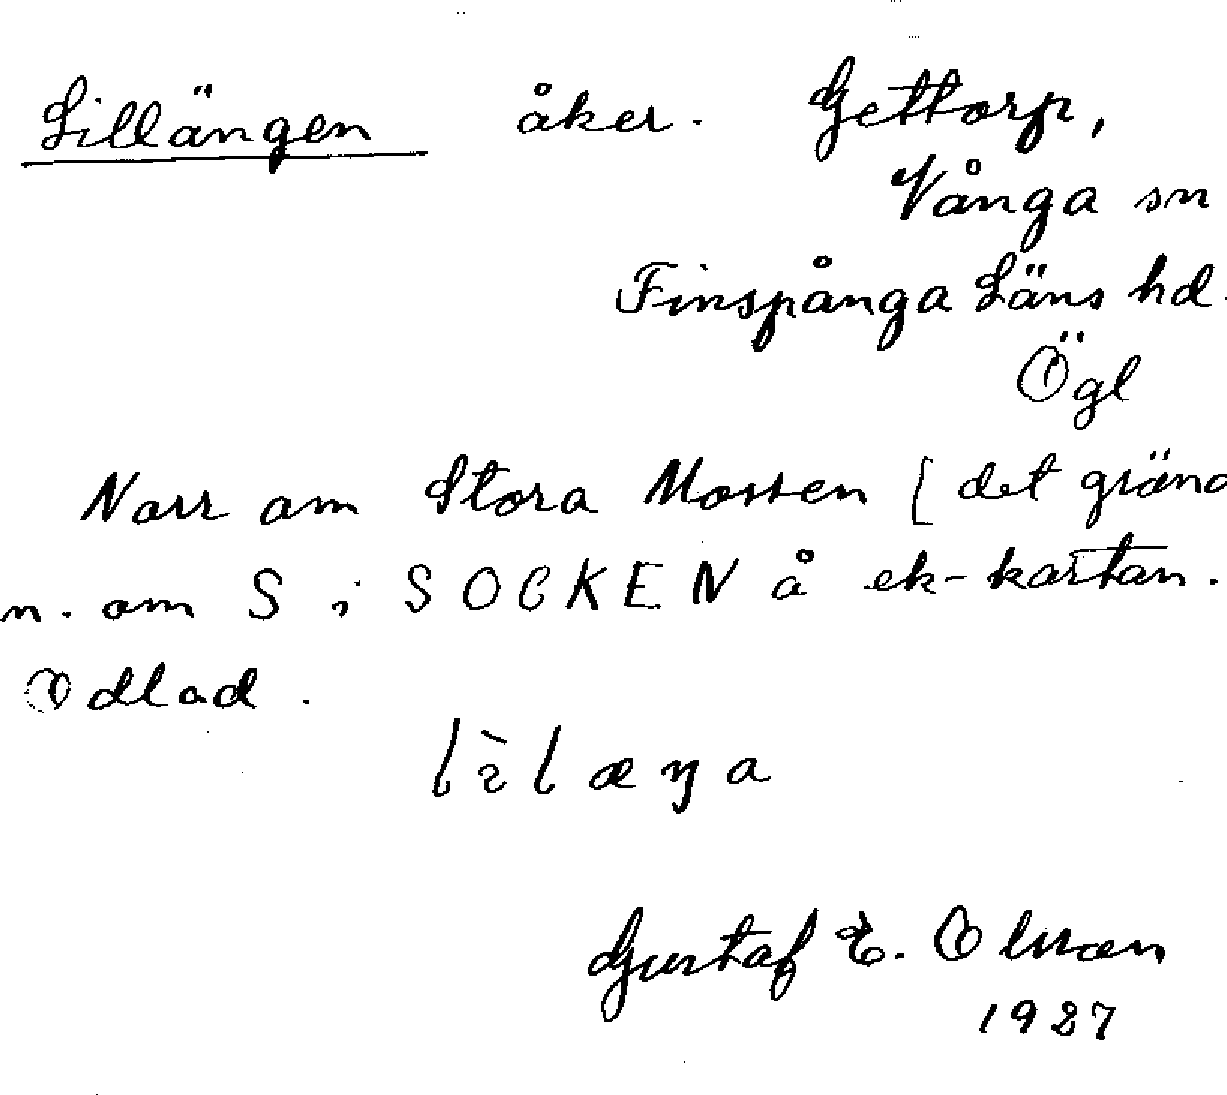 Lillängen åker. Gettorp,
Vånga sn
Finspånga Läns hd.
Ögl
Norr om Stora Mossen [det gränd
n. om S i SOCKEN å ek-kartan.
Odlad.
lìlæŋa
Gustaf E. Olsson
1927